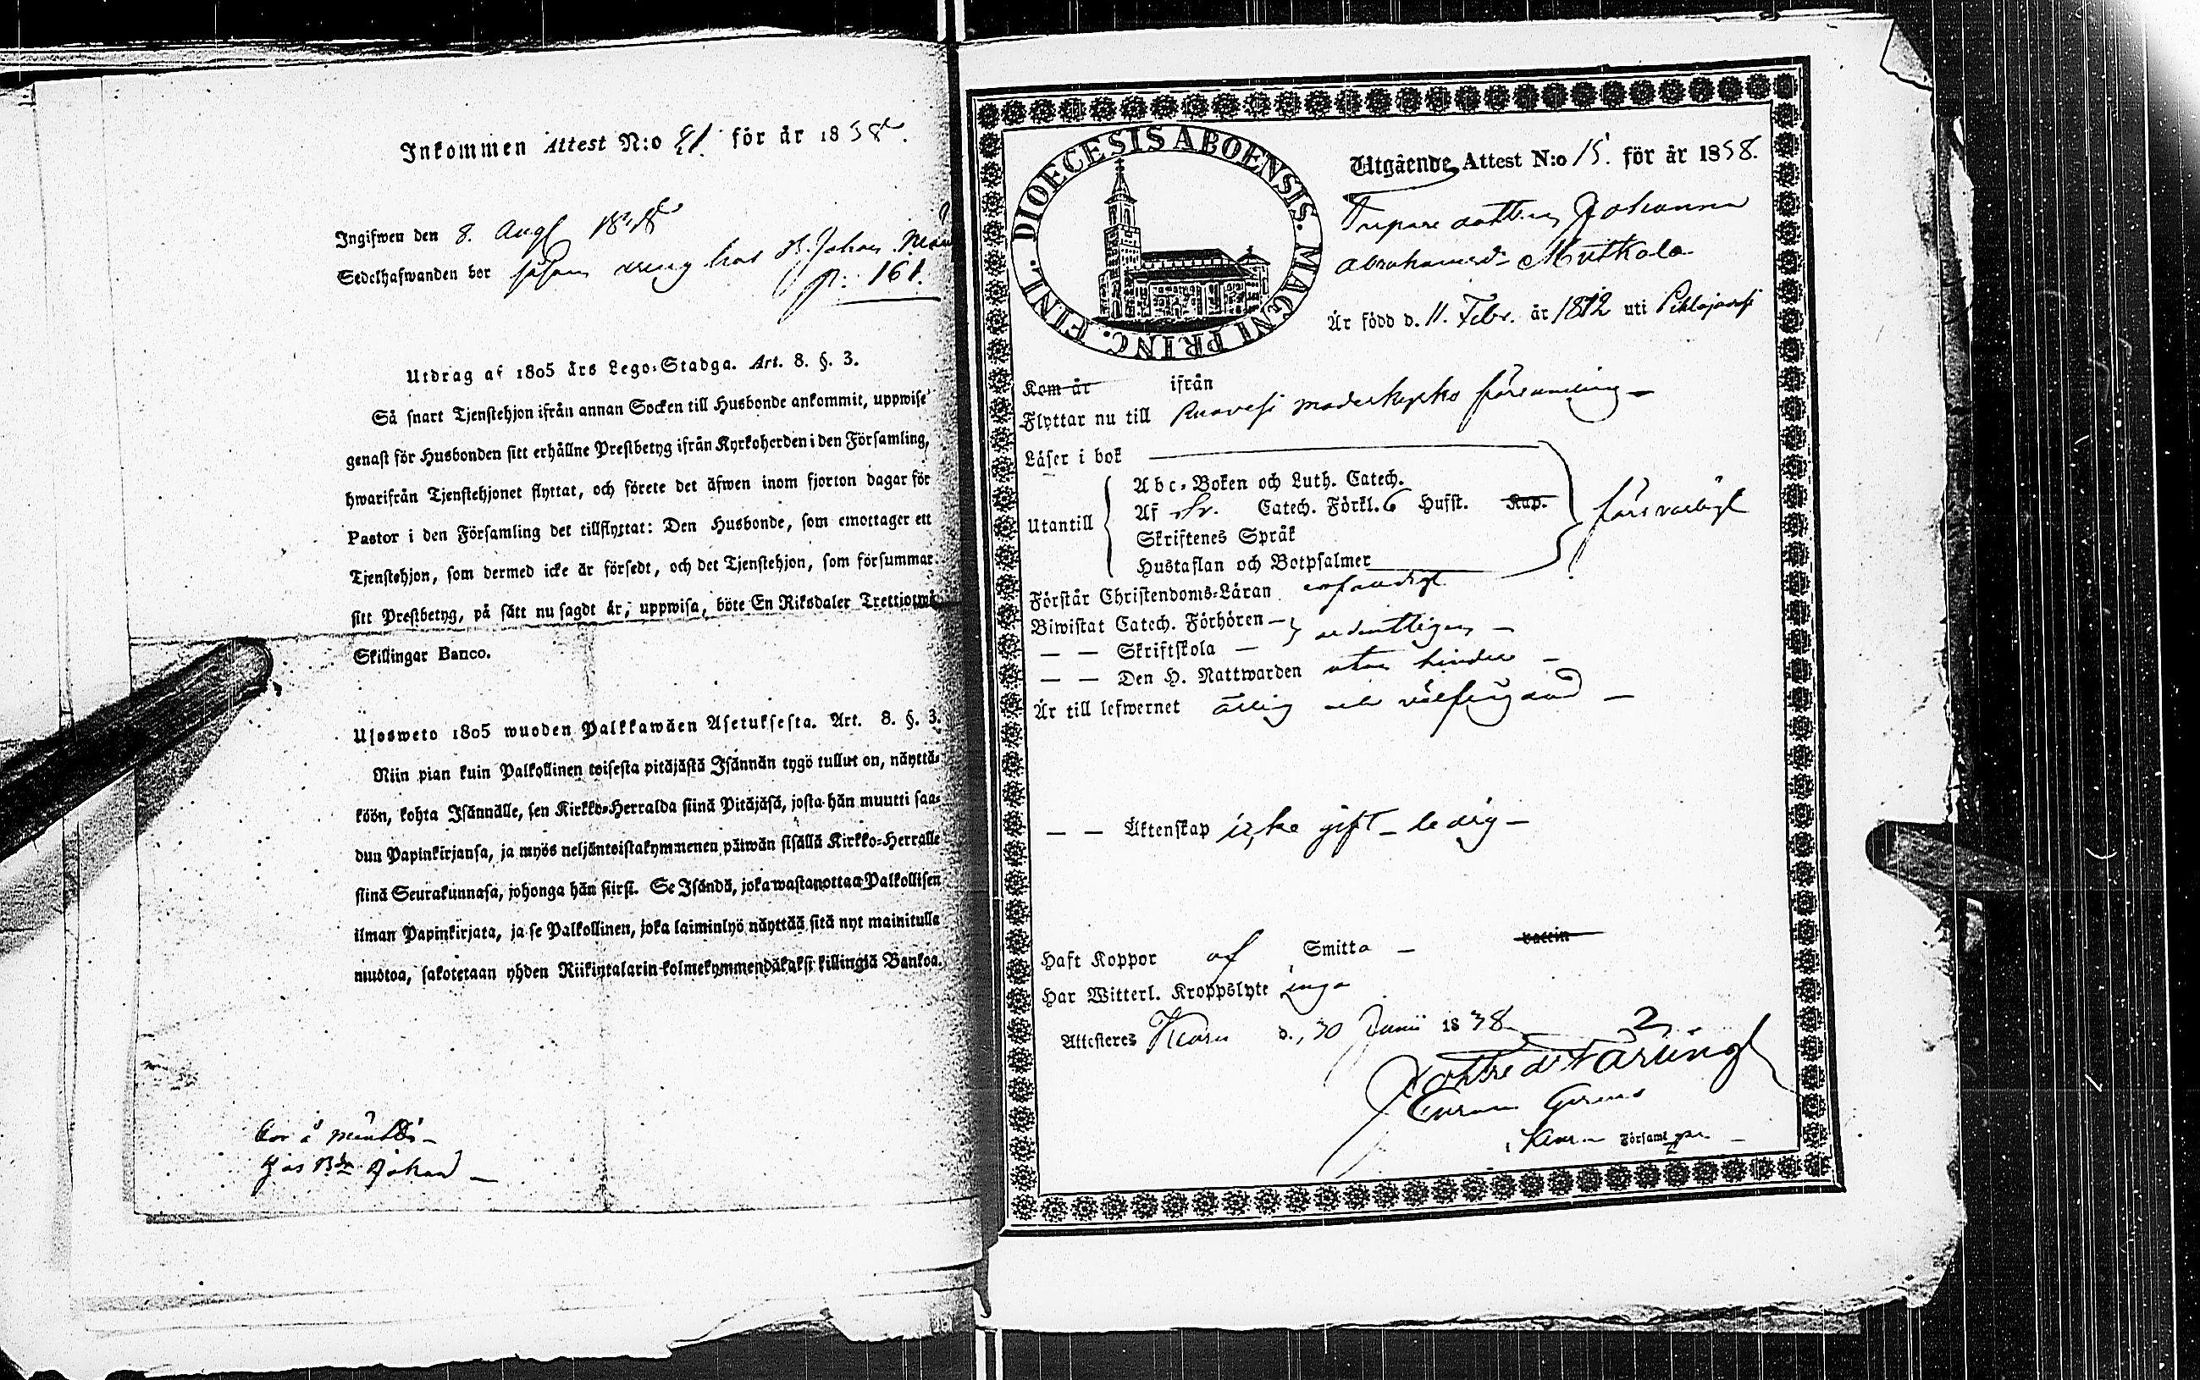 Inkommen Attest N:o 21. för år 1838.
Ingifwen den 8. Aug 1838
Sedelhafwanden bor hos Johan
p. 161.
Utdrag af 1805 års Lego-Stadga. Art. 8. §. 3.
Så snart Tjenstehjon ifrån annan Socken till Husbonde ankommit, uppwise
genast för Husbonden sitt erhållne Prestbetyg ifrån Kyrkoherden i den Församling,
hwarifrån Tjenstehjonet flyttat, och förete det äfwen inom fjorton dagar för
Pastor i den Församling det tillflyttat: Den Husbonde, som emottager ett
Tjenstehjon, som dermed icke är försedt, och det Tjenstehjon, som försummar
sitt Prestbetyg, på sätt nu sagdt är, uppwisa, böte En Riksdaler Trettiotwå
Skillingar Banco.
Ulosweto 1805 wuoden Palkkawäen Asetuksesta. Art. 8. §. 3.
Niin pian kuin Palkollinen toisesta pitäjästä Isännän tygö tullut on, näyttä-
köön, kohta Isännälle, sen Kirkko-Herralda siinä Pitäjäsä, josta hän muutti saa-
dun Papinkirjansa, ja myös neljäntoistakymmenen päiwän sisällä Kirkko-Herralle
siinä Seurakunnasa, johonga hän siirsi. Se Isändä, joka wastanottaa Palkollisen
ilman Papinkirjata, ja se Palkollinen, joka laiminlyö näyttää sitä nyt mainitulla
muotoa, sakotetaan yhden Riikintalarin kolmekymmendäkaksi killingiä Bankoa.
bor å
hos Johan
DIOECESIS ABOENSIS. MAGNI PRINC. FINL.
Utgående Attest N:o 15. för år 1838.
Johanna
Abrahamsd. Mutkala
Är född d. 11. Febr. år 1812 uti Pihlajavesi
Kom år ifrån
Flyttar nu till Ruovesi moderkyrko församling
Läser i bok
Utantill
Abc-Boken och Luth. Catech.
Af Sv. Catech. Förkl. 6 Hufst. Kap.
Skriftenes Språk
Hustaflan och Botpsalmer
försvarligt
Förstår Christendoms-Läran
Biwistat Catech. Förhören
— — Skriftskola — ordentligen
— — Den H. Nattwarden utan hinder
Är till lefwernet ärlig och välfrejdad
— — Äktenskap icke gift - ledig
Haft Koppor af Smitta vaccin
Har Witterl. Kroppslyte inga
Attesteres Keuru d. 30 Junii 1838
Församl.